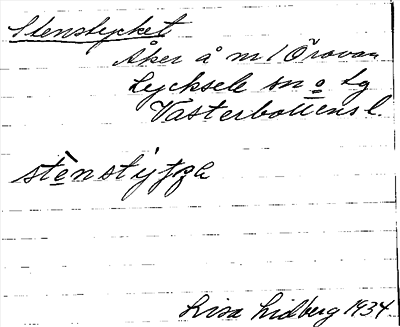 Stenstycket
Åker å m/ Örovan
Lycksele sn o lg
Västerbottens l.
Lisa Lidberg 1934